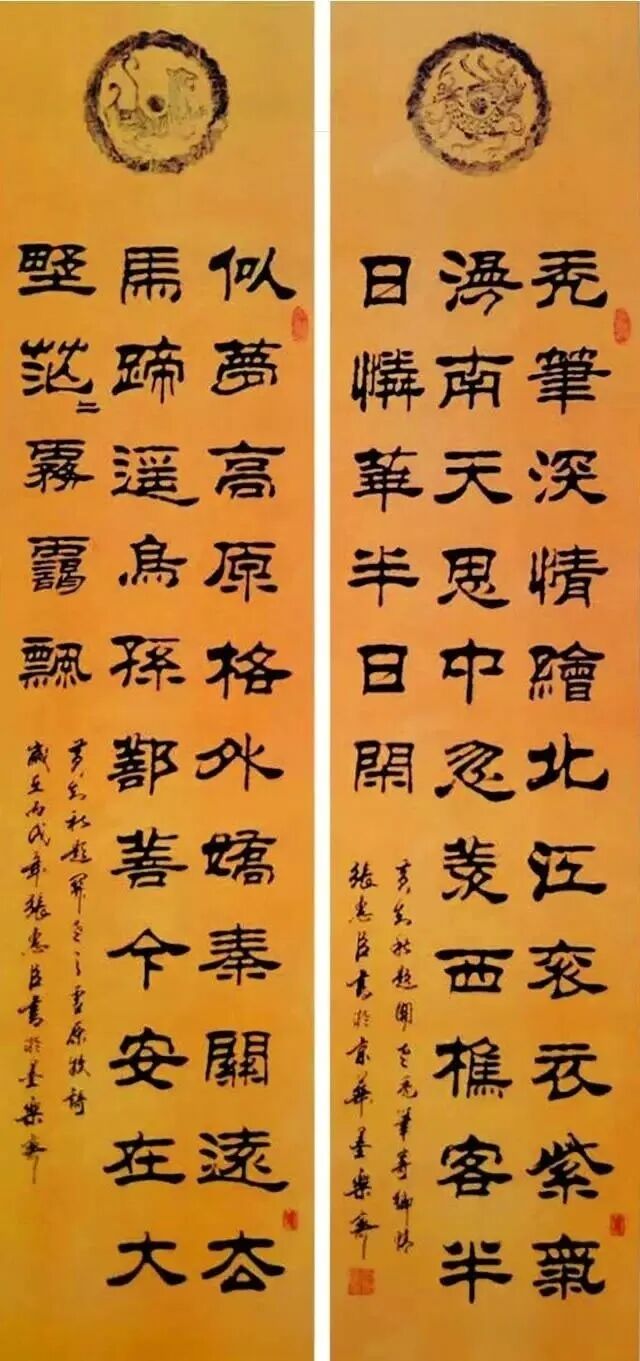 禿筆深情繪北江衮衣紫氣
滿南天思中忽羨西樵客半
日憐華半日閑
題關老禿筆寄鄉情
張臣書於京華墨樂齋
似夢高原格外嬌秦關遠去
馬蹄遥烏孫鄯善今安在大
野茫二霧靄飄
題關老之雪原牧詩
歲在丙戌年張臣書於墨樂齋